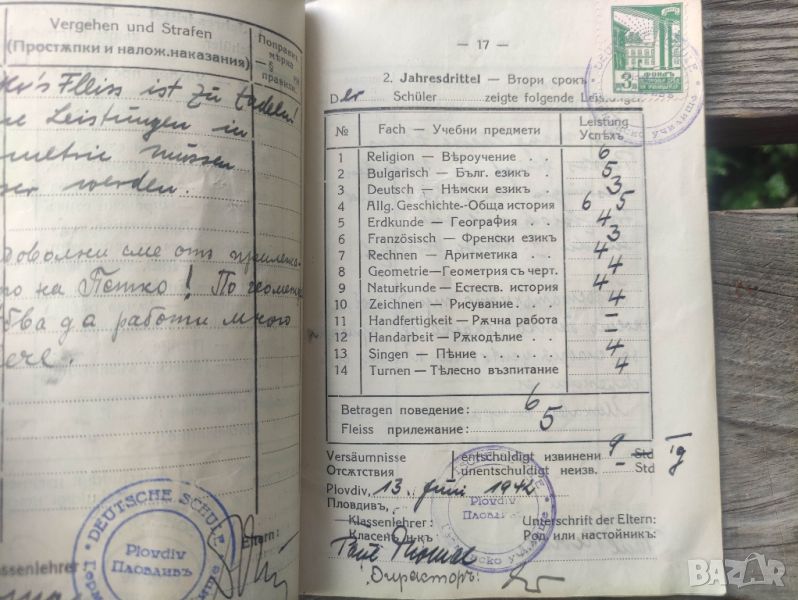 Vergehen und Strafen
(Простѫпки и налож.наказания)
Поправит.
мѣрка
— § —
на
правилн.
Fleiss ist zu tadeln!
Leistungen in
müssen
werden.
доволни сме отъ прилежа-
на Петко! По геомет
да работи много
DEUTSCHE SCHULE
Plovdiv
Пловдивъ
Eltern:
assenlehrer
— 17 —
2. Jahresdrittel — Втори срокъ
Der Schüler zeigte folgende Leistungen
3 ЛВ
ФОНДЪ
№ Fach — Учебни предмети Leistung Успѣхъ
1 Religion — Вѣроучение . . 6
2 Bulgarisch — Бълг. езикъ . 5
3 Deutsch — Нѣмски езикъ . 3
4 Allg. Geschichte-Обща история 6 5
5 Erdkunde — География . . 4
6 Französisch — Френски езикъ 3
7 Rechnen — Аритметика . . 4
8 Geometrie—Геометрия съ черт. 4
9 Naturkunde — Естеств. история 4
10 Zeichnen — Рисуване . . 4
11 Handfertigkeit — Рѫчна работа –
12 Handarbeit — Рѫкодѣлие . . –
13 Singen — Пѣние . . . 4
14 Turnen — Тѣлесно възпитание 4
Betragen поведение: 6
Fleiss прилежание: 5
Versäumnisse entschuldigt извинени 9 Std
Отсѫтствия unentschuldigt неизв. – Std
Plovdiv, 13. Juni 1942
Пловдивъ,
Klassenlehrer: Unterschrift der Eltern:
Класенъ н-къ: Род. или настойникъ:
Директоръ:
DEUTSCHE SCHULE
Plovdiv
Пловдивъ
BAZAR